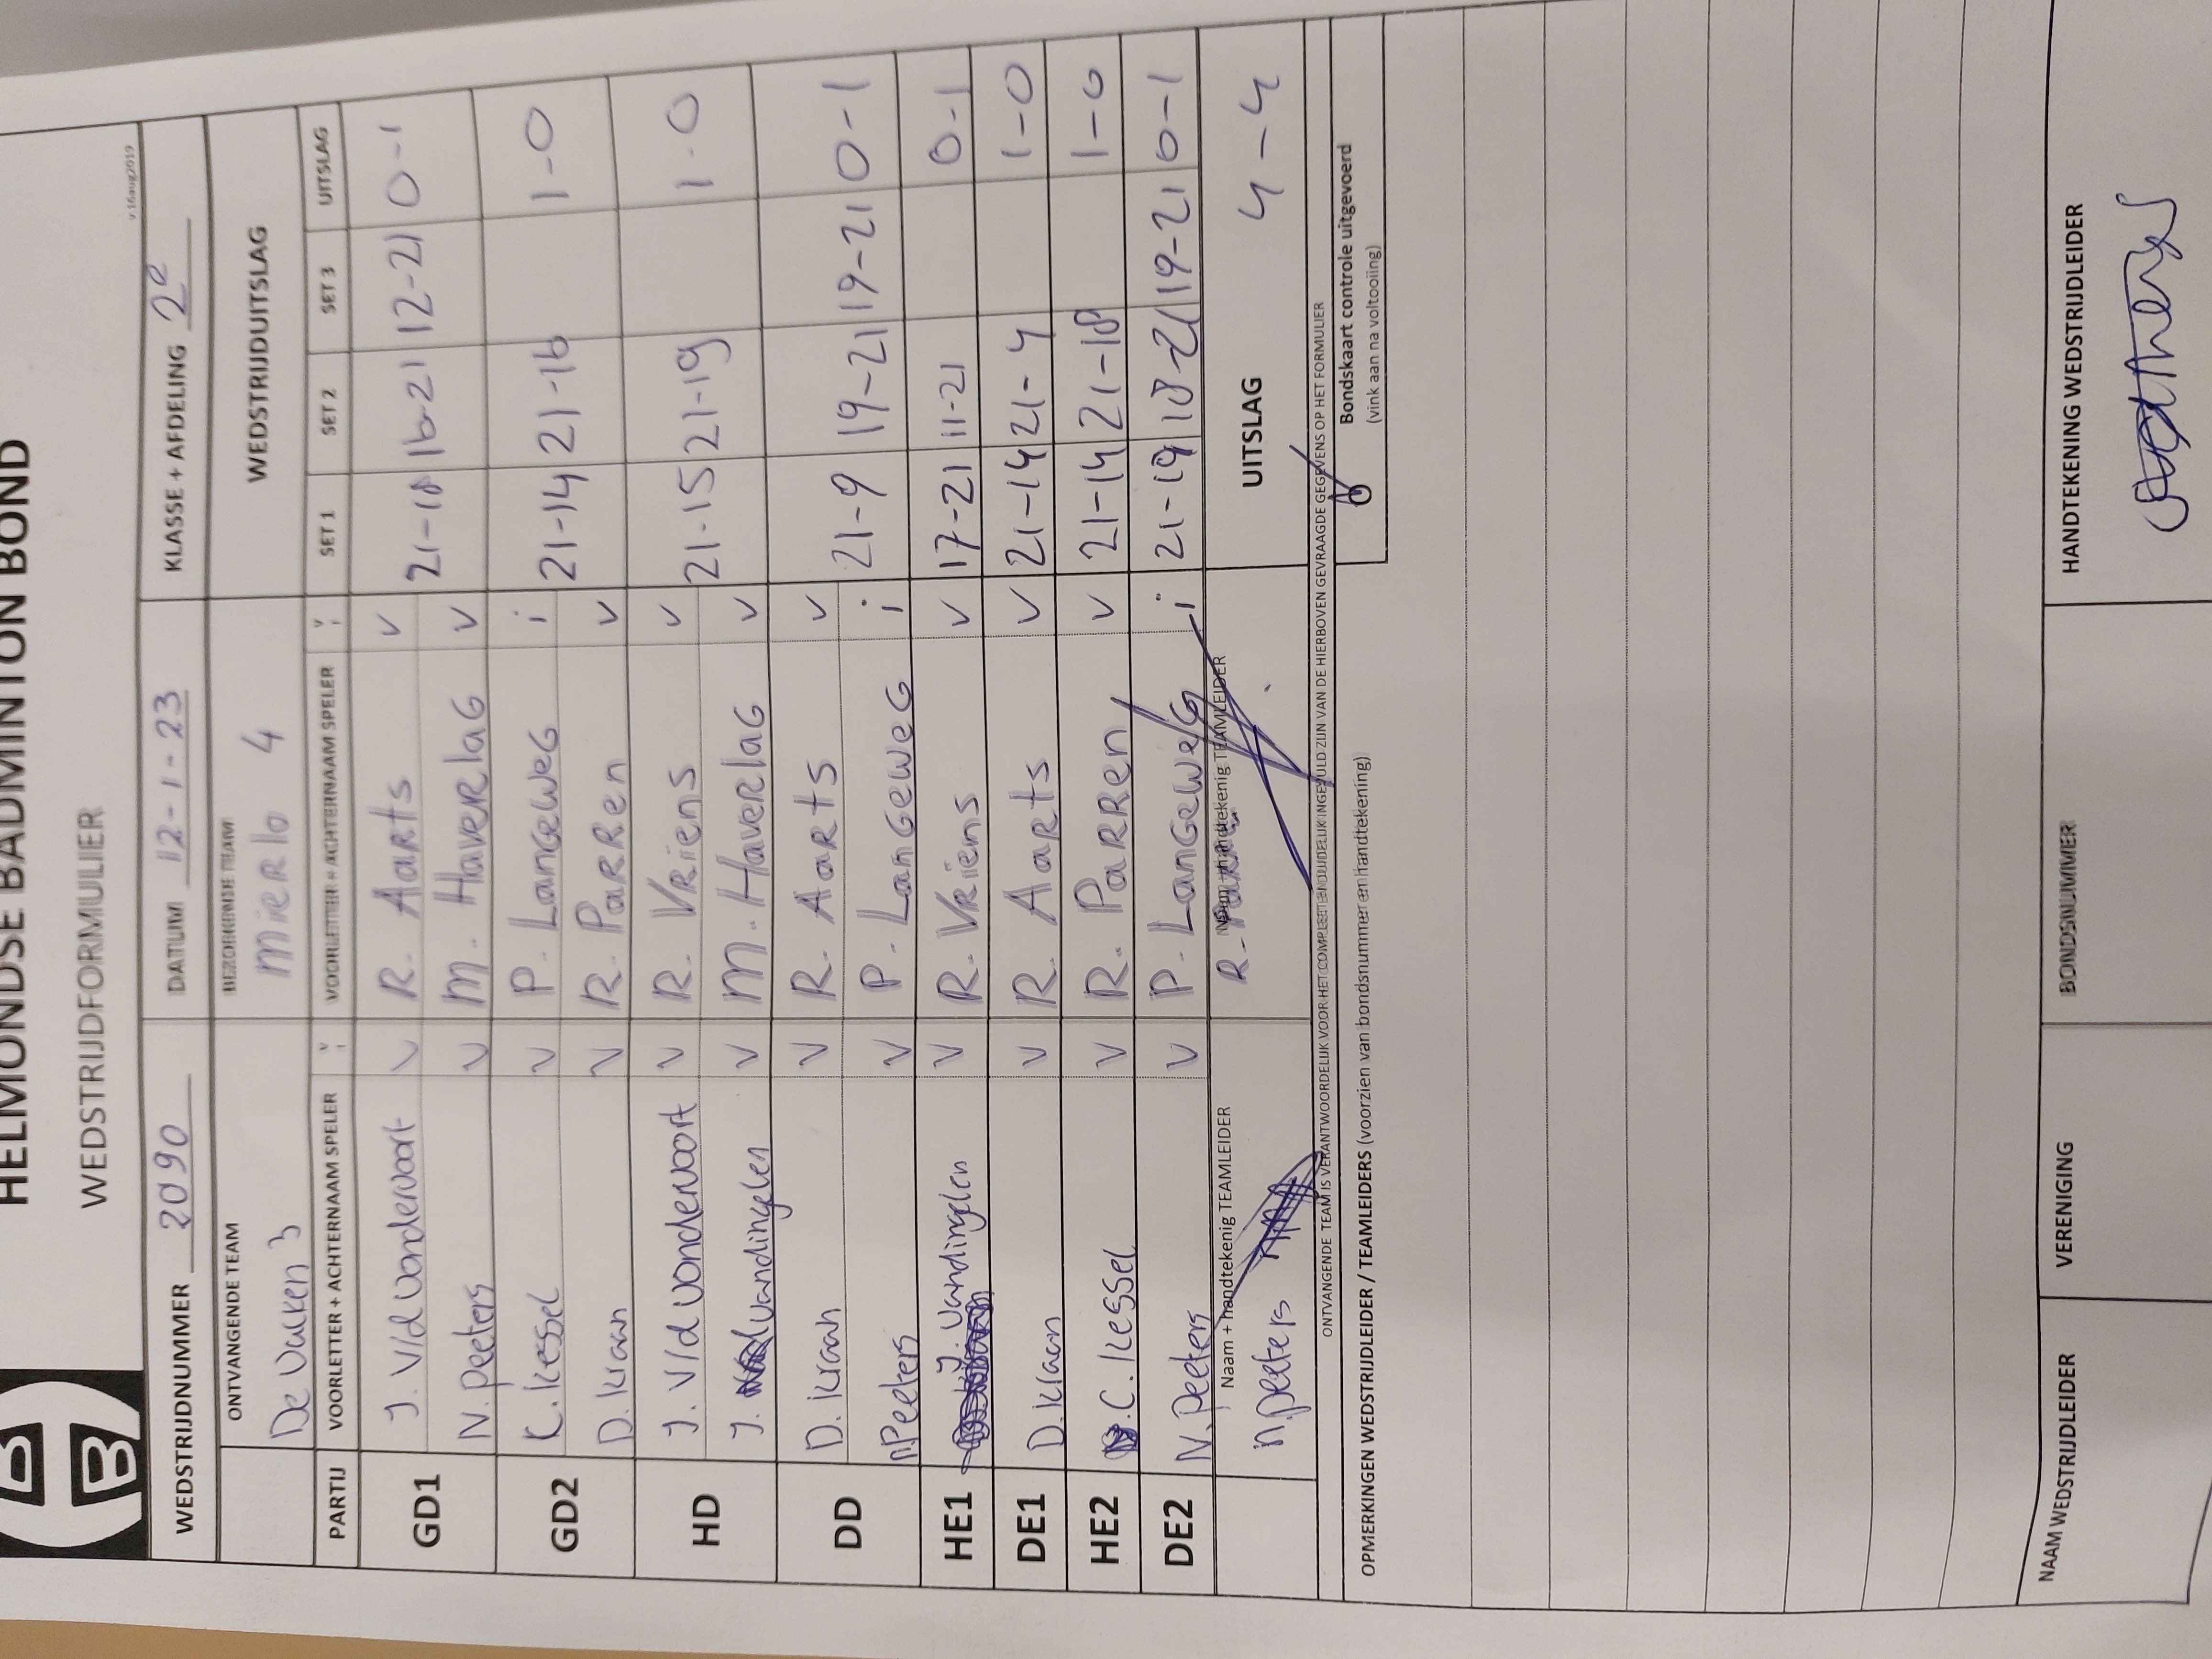 HELMONDSE BADMINTON BOND
WEDSTRIJDFORMULIER
v.16aug2019
WEDSTRIJDNUMMER 2090 DATUM 12-1-23 KLASSE + AFDELING 2e
ONTVANGENDE TEAM BEZOEKENDE TEAM WEDSTRIJDUITSLAG
De Valken 3 Mierlo 4
PARTIJ VOORLETTER + ACHTERNAAM SPELER V i VOORLETTER + ACHTERNAAM SPELER V i SET 1 SET 2 SET 3 UITSLAG
GD1 J. v/d Vondervoort V R. Aarts V 21-18 16-21 12-21 0-1
N. Peeters V M. Haverlag V
GD2 C. Kessel V P. Langeweg i 21-14 21-16 1-0
D. Kraan V R. Parren V
HD J. v/d Vondervoort V R. Vriens V 21-15 21-19 1-0
J. Vandingelen V M. Haverlag V
DD D. Kraan V R. Aarts V 21-9 19-21 19-21 0-1
N. Peeters V P. Langeweg i
HE1 J Vandingelen V R. Vriens V 17-21 11-21 0-1
DE1 D. Kraan V R. Aarts V 21-14 21-4 1-0
HE2 C. Kessel V R. Parren V 21-14 21-18 1-0
DE2 N. Peeters V P. Langeweg i 21-19 18-21 19-21 0-1
Naam + handtekenig TEAMLEIDER Naam + handtekenig TEAMLEIDER UITSLAG 4-4
N. Peeters R. Parren
ONTVANGENDE TEAM IS VERANTWOORDELIJK VOOR HET COMPLEET EN DUIDELIJK INGEVULD ZIJN VAN DE HIERBOVEN GEVRAAGDE GEGEVENS OP HET FORMULIER
Bondskaart controle uitgevoerd
(vink aan na voltooiing)
OPMERKINGEN WEDSTRIJDLEIDER / TEAMLEIDERS (voorzien van bondsnummer en handtekening)
NAAM WEDSTRIJDLEIDER VERENIGING BONDSNUMMER HANDTEKENING WEDSTRIJDLEIDER